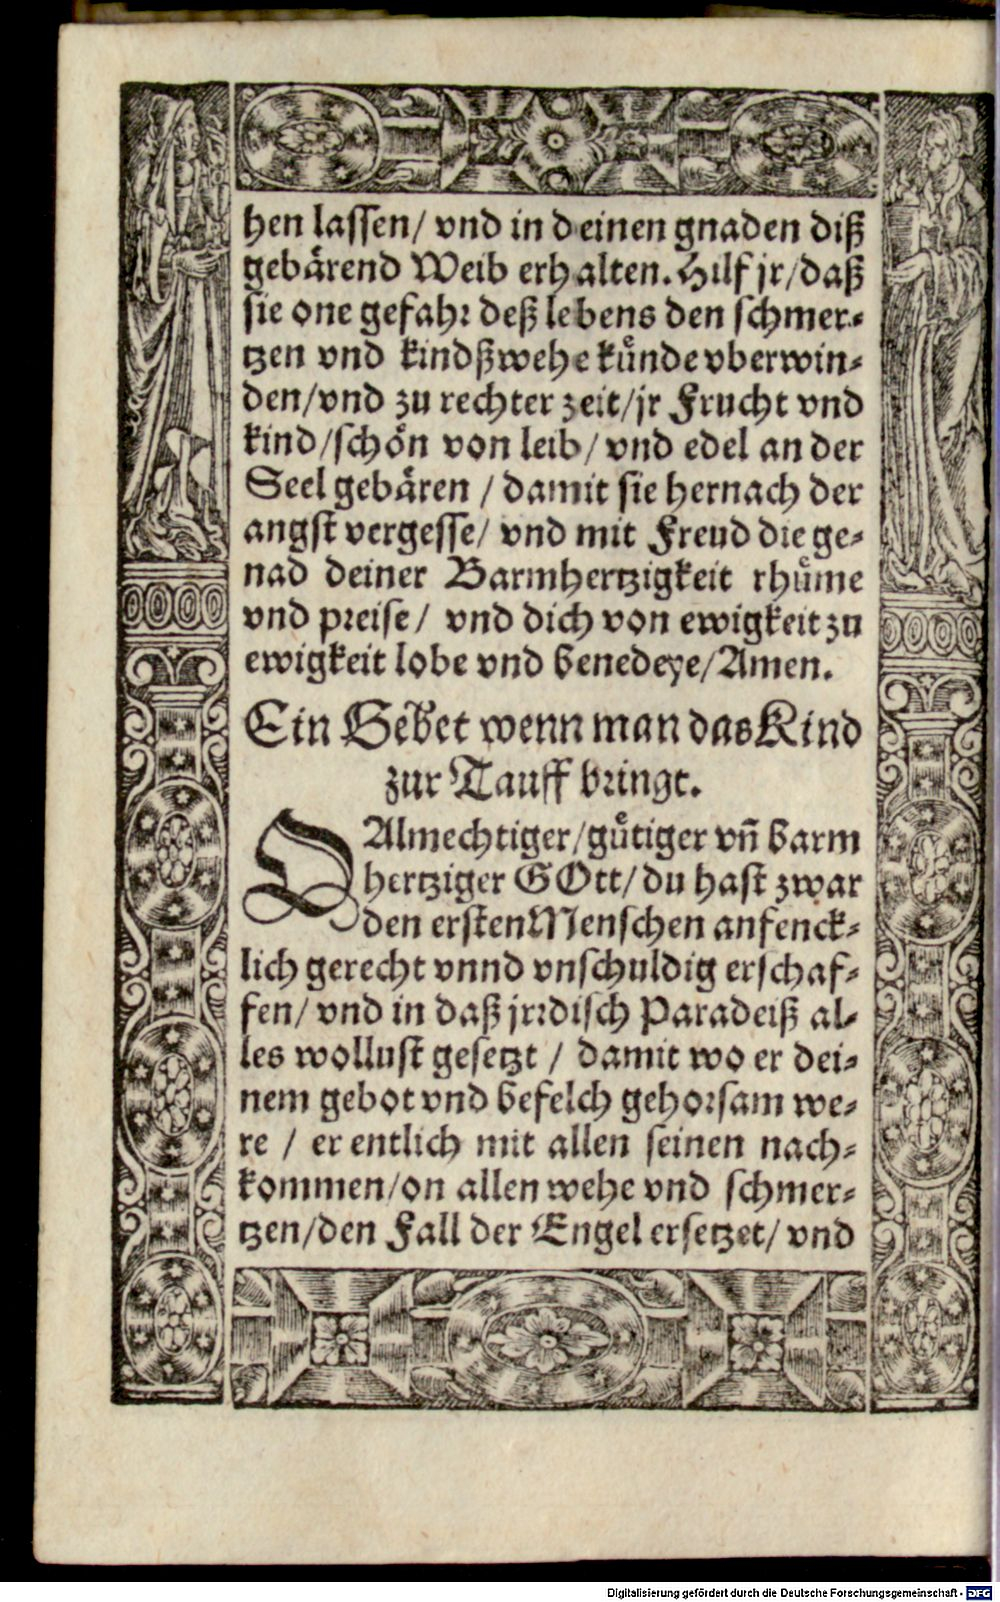 hen lassen/ vnd in deinen gnaden diß
gebaͤrend Weib erhalten. Hilf jr/daß
sie one gefahr deß lebens den schmer-
tzen vnd kindßwehe kuͤnde vberwin-
den/vnd zu rechter zeit/jr Frucht vnd
kind/schoͤn von leib/ vnd edel an der
Seel gebaͤren / damit sie hernach der
angst vergesse/ vnd mit Freud die ge-
nad deiner Barmhertzigkeit rhuͤme
vnd preise/ vnd dich von ewigkeit zu
ewigkeit lobe vnd benedeye/Amen.
Ein Gebet wenn man das Kind
zur Tauff bringt.
O Almechtiger/guͤtiger vn̄ barm
hertziger GOtt/du hast zwar
den ersten Menschen anfenck-
lich gerecht vnnd vnschuldig erschaf-
fen/ vnd in daß jrrdisch Paradeiß al-
les wollust gesetzt / damit wo er dei-
nem gebot vnd befelch gehorsam we-
re / er entlich mit allen seinen nach-
kommen/on allen wehe vnd schmer-
tzen/den Fall der Engel ersetzet/ vnd
Digitalisierung gefördert durch die Deutsche Forschungsgemeinschaft - DFG